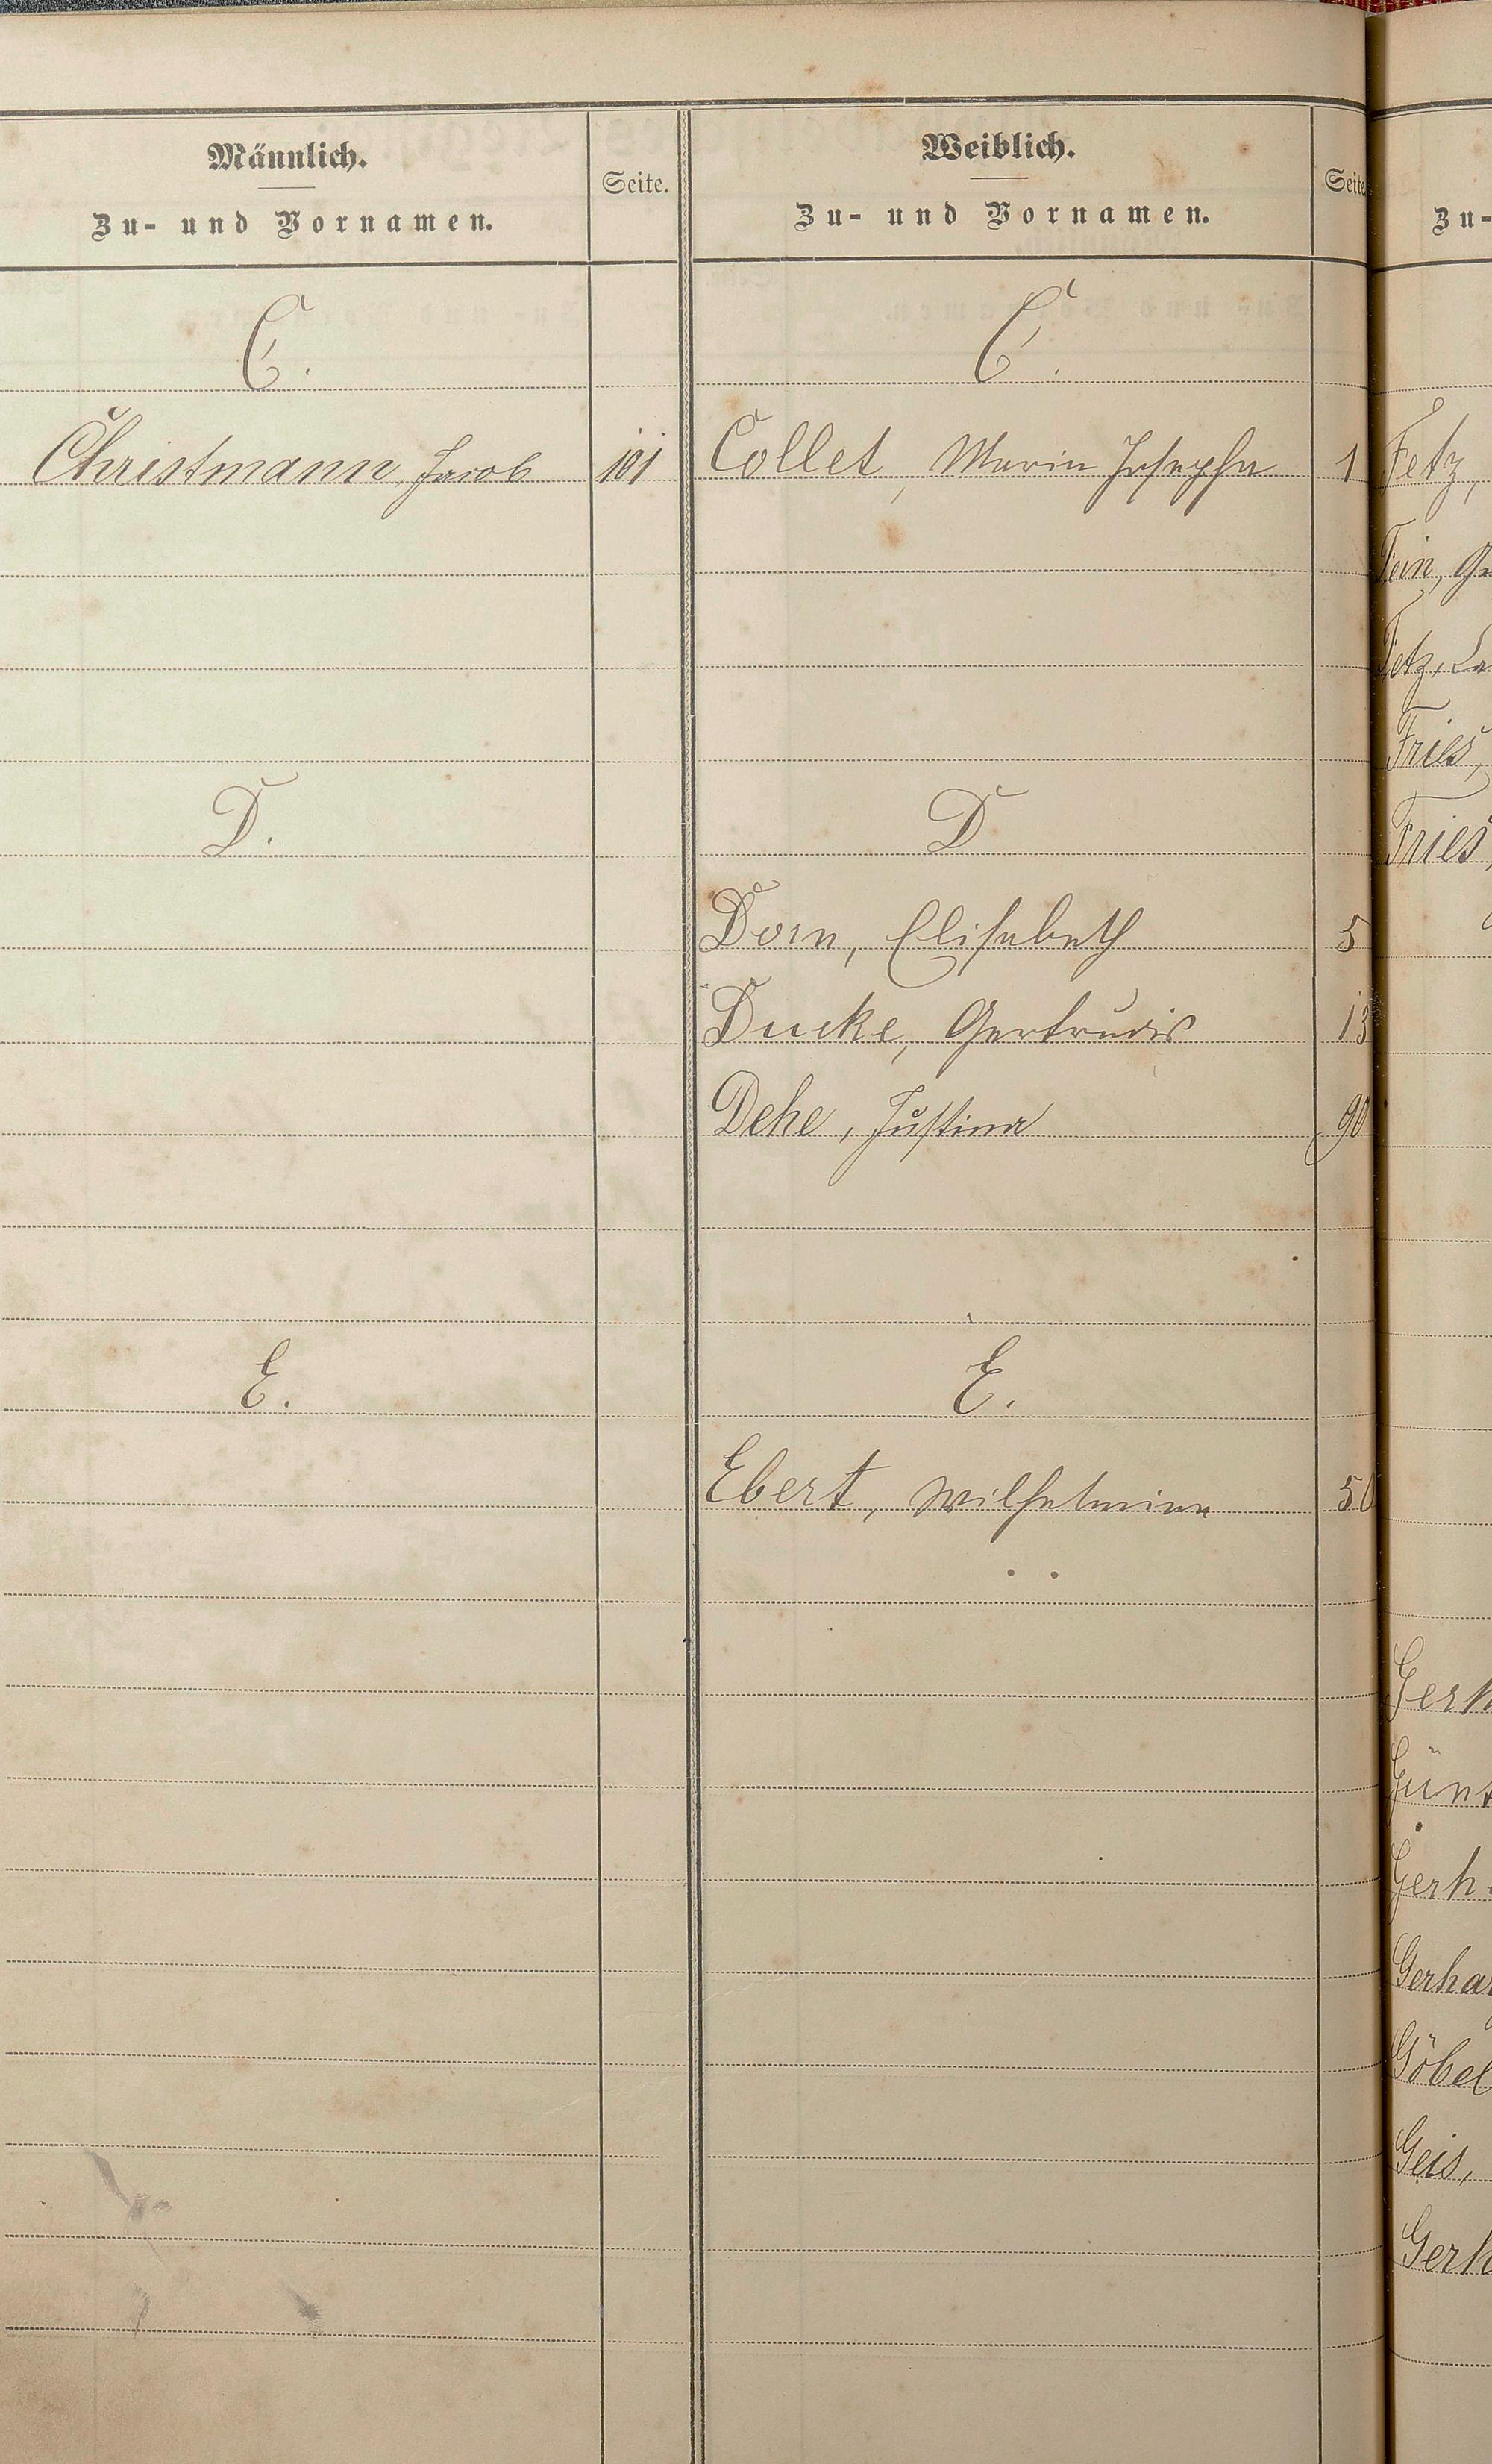 Männlich.
Zu- und Vornamen.
Seite.
Weiblich.
Zu- und Vornamen.
Seite
C.
C.
Christmann, Jacob 101
Collet, Maria Josepha 1
D.
D
Dorn, Elisabeth 5
Ducke, Gertrudis 13
Dehe, Justina 90
E.
E.
Ebert, Wilhelmina 50
Zu-
Fetz,
Fein, Ge
Fetz, La
Fries,
Fries,
Gerh
Günt
Gerh
Gerhar
Göbel
Geis,
Gerh